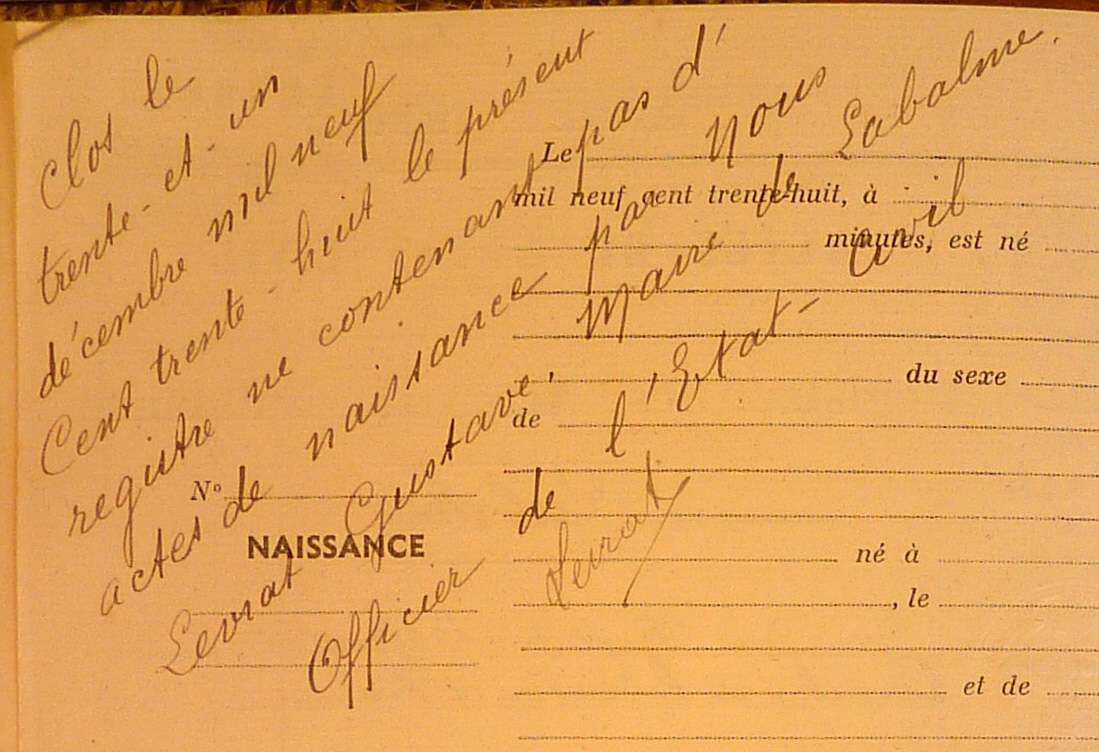 Clos le
trente-et-un
décembre mil neuf
Cent trente-huit le présent
registre ne contenant pas d'
actes de naissance par Nous
Levrat Gustave, Maire de Labalme.
Officier de l'Etat-Civil
Levrat
Le
mil neuf cent trente-huit, à
minutes, est né
du sexe
de
N°
NAISSANCE
né à
, le
et de